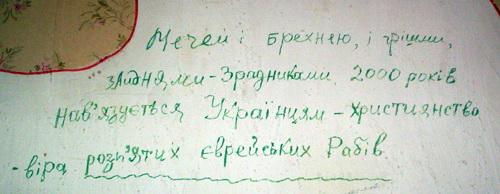 Мечем і брехнею, і грішми,
злиднями-Зрадниками 2000 років
нав'язується Українцям - християнство
- віра розп'ятих єврейських Рабів